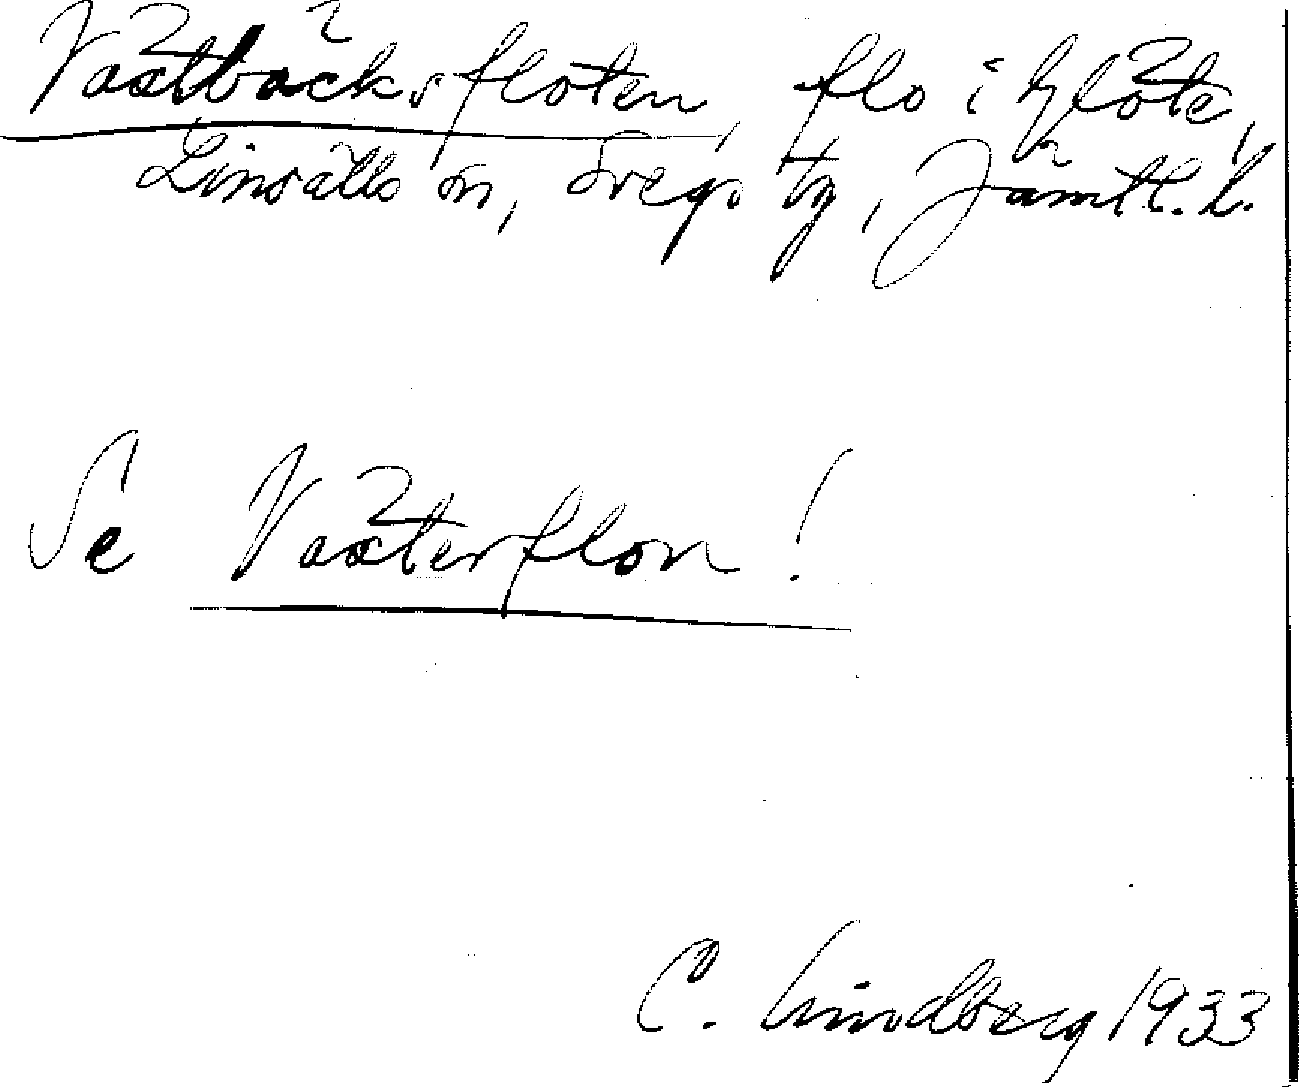 Västbäcksfloten, flo i Glöte,
Linsälls sn, Svegs tg, Jämtl. l.
Se Västerflon!
C. Lindberg 1933